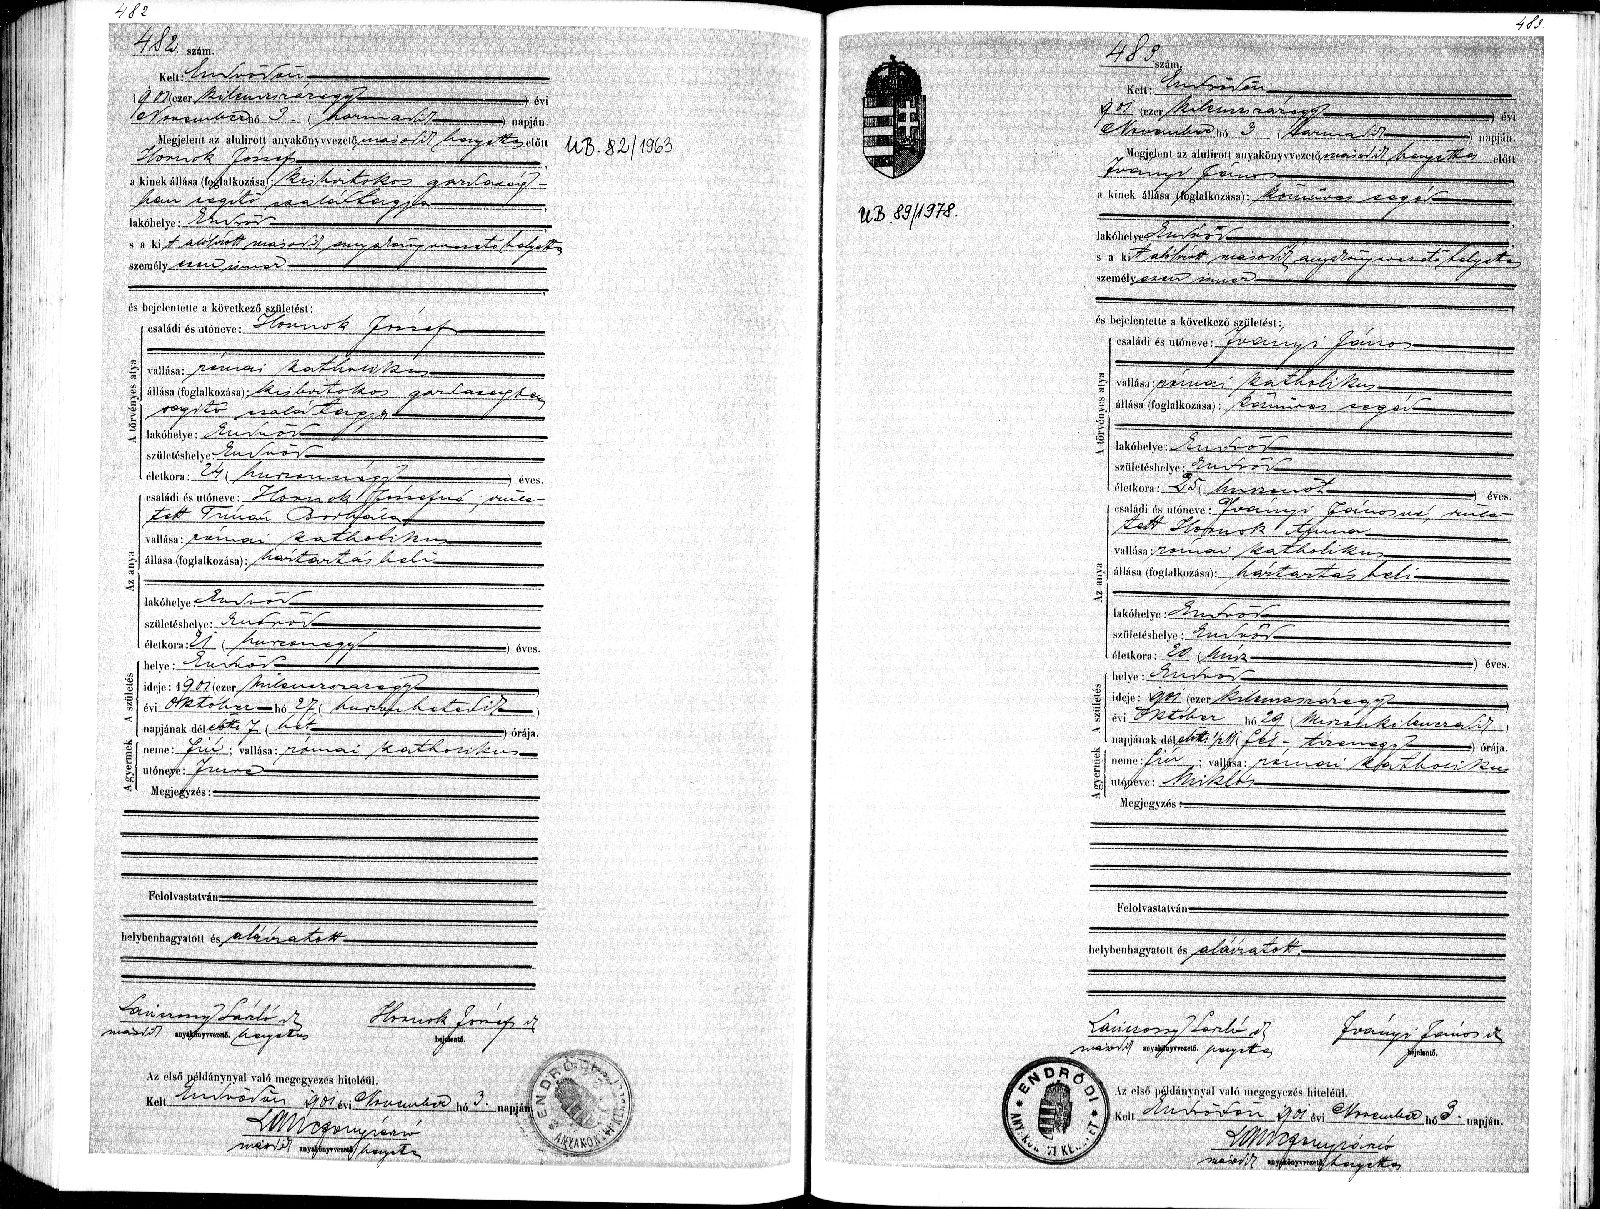 482
482 szám.
Kelt: Endrődön
1901 (ezer kilencszázegy) évi
November hó 3 (harmadik) napján.
Megjelent az alulirott anyakönyvvezető második helyettes előtt
Hornok József
a kinek állása (foglalkozása): kisbirtokos gazdaság-
ban segitő családtagja
lakóhelye: Endrőd
s a kit alólirott második anyakönyvvezető helyettes
személyesen ismer
és bejelentette a következő születést:
A törvényes atya
családi és utóneve: Hornok József
vallása: római katholikus
állása (foglalkozása): kisbirtokos gazdaságban
segitő családtagja
lakóhelye: Endrőd
születéshelye: Endrőd
életkora: 24 (huszonnégy) éves.
Az anya
családi és utóneve: Hornok Józsefné, szüle-
tett Timár Borbála
vallása: római katholikus
állása (foglalkozása): háztartásbeli
lakóhelye: Endrőd
születéshelye: Endrőd
életkora: 21 (huszonegy) éves.
A születés
helye: Endrőd
ideje: 1901 (ezer kilencszázegy)
évi Október hó 27 (huszonhetedik)
napjának délelőtti 7 (hét) órája.
A gyermek
neme: fiú; vallása: római katholikus
utóneve: Imre
Megjegyzés:
Felolvastatván
helybenhagyatott és aláiratott
Lánczony László sk
Hornok József sk
második anyakönyvvezető. helyettes
bejelentő.
Az első példánynyal való megegyezés hiteléül.
Kelt Endrődön 1901 évi November hó 3. napján
második anyakönyvvezető helyettes
ENDRŐDI
UB. 82/1963
483
483 szám.
Kelt: Endrődön
1901 (ezer kilencszázegy) évi
November hó 3 (harmadik) napján.
Megjelent az alulirott anyakönyvvezető második helyettes előtt
Iványi János
a kinek állása (foglalkozása): kőmüves segéd
lakóhelye: Endrőd
s a kit alólirott második anyakönyvvezető helyettes
személyesen ismer
és bejelentette a következő születést:
A törvényes atya
családi és utóneve: Iványi János
vallása: római katholikus
állása (foglalkozása): kőmüves segéd
lakóhelye: Endrőd
születéshelye: Endrőd
életkora: 25 (huszonöt) éves.
Az anya
családi és utóneve: Iványi Jánosné, szüle-
tett Hornok Anna
vallása: római katholikus
állása (foglalkozása): háztartásbeli
lakóhelye: Endrőd
születéshelye: Endrőd
életkora: 20 (húsz) éves.
A születés
helye: Endrőd
ideje: 1901 (ezer kilencszázegy)
évi Október hó 29 (huszonkilenczedik)
napjának délelőtti ½11 (fél - tizenegy) órája.
A gyermek
neme: fiú; vallása: római katholikus
utóneve: Miklós
Megjegyzés:
Felolvastatván
helybenhagyatott és aláiratott.
Lánczony László sk
Iványi János sk
második anyakönyvvezető. helyettes
bejelentő.
Az első példánynyal való megegyezés hiteléül.
Kelt Endrődön 1901 évi November hó 3. napján.
második anyakönyvvezető helyettes
ENDRŐDI
UB 89/1978.